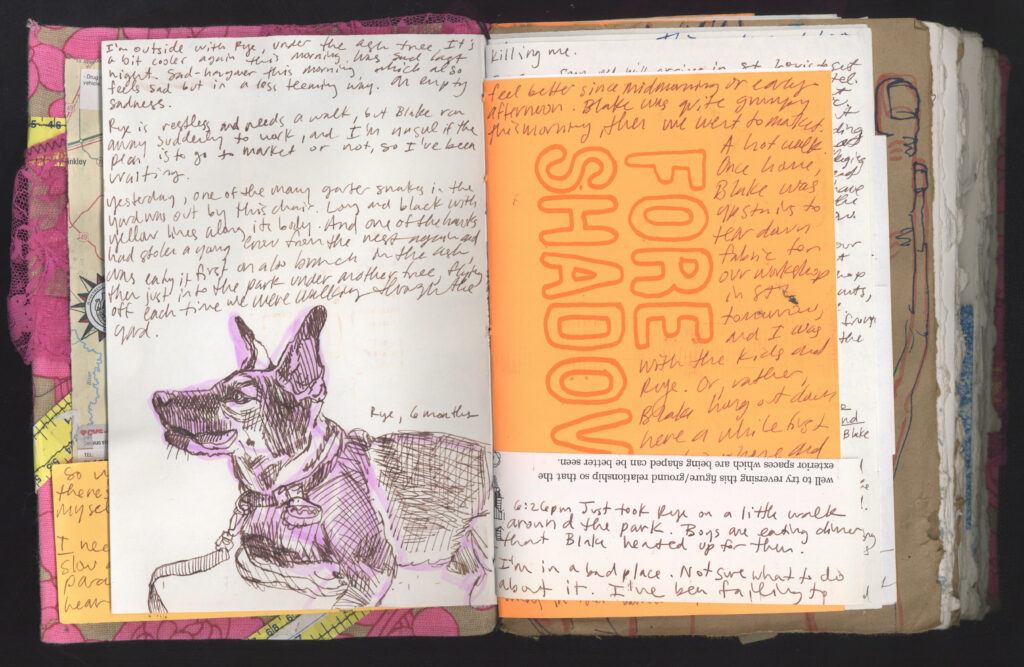 I'm outside with Rye, under the ash tree, It's
a bit cooler again this morning. Was sad last
night. Sad-hangover this morning, which also
feels sad but in a less teeming way. An empty
sadness.
Rye is restless and needs a walk, but Blake ran
away suddenly to work, and I'm unsure if the
plan is to go to market or not, so I've been
waiting.
Yesterday, one of the many garter snakes in the
yard was out by this chair. Long and black with
yellow lines along its body. And one of the hawks
had stolen a young from the nest again and
was eating it first on a branch in the ash,
then just into the park under another tree, flying
off each time we were walking through the
yard.
Rye, 6 months
So w
there
myself
I nee
slow
para
hear
killing me.
feel better since midmorning or early
afternoon. Blake was quite grumpy
this morning then we went to market.
A hot walk.
Once home,
Blake was
upstairs to
tear down
fabric for
our workshop
in STL
tomorrow,
and I was
with the kids and
Rye. Or, rather,
Blake hung out down
here a while first
FORE
SHADOW
well to try reversing this figure/ground relationship so that the
exterior spaces which are being shaped can be better seen.
6:26pm Just took Rye on a little walk
around the park. Boys are eating dinner
that Blake heated up for them.
I'm in a bad place. Not sure what to do
about it. I've been failing to
the
and
Blake